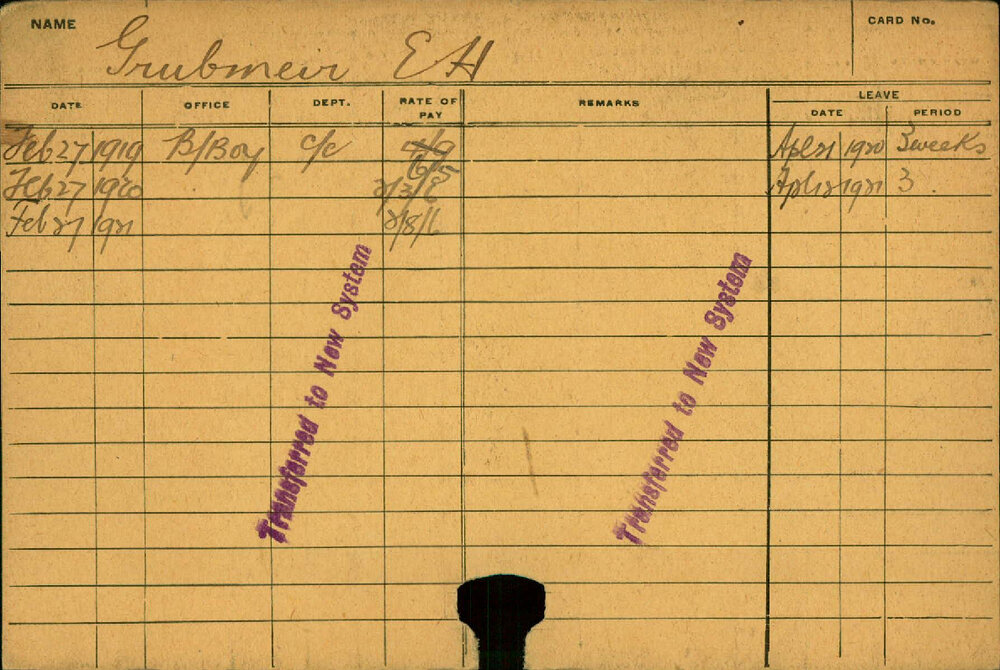 NAME Grubmeir E H CARD No.
LEAVE
DATE OFFICE DEPT. RATE OF PAY REMARKS DATE PERIOD
Feb 27 1919 B/Boy c/c Apl 21 1920 3 weeks
6/5
Feb 27 1920 2/3/6 Apl 12 1921 3
Feb 27 1921 2/8/6
Transferred to New System
Transferred to New System